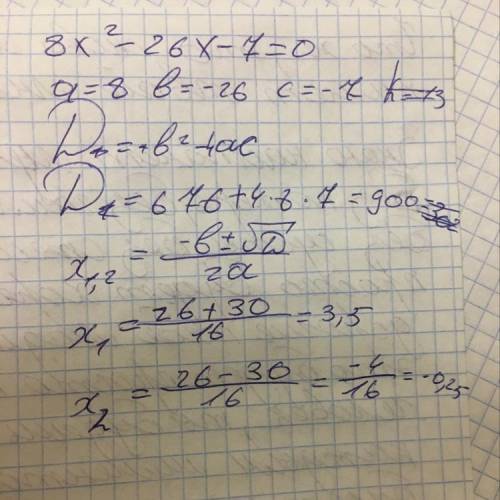 8x² - 26x - 7 = 0
a = 8 b = -26 c = -7 k = -13
D = b² - 4ac
D = 676 + 4 · 8 · 7 = 900
x₁,₂ = (-b ± √D) / 2a
x₁ = (26 + 30) / 16 = 3,5
x₂ = (26 - 30) / 16 = -4 / 16 = -0,25